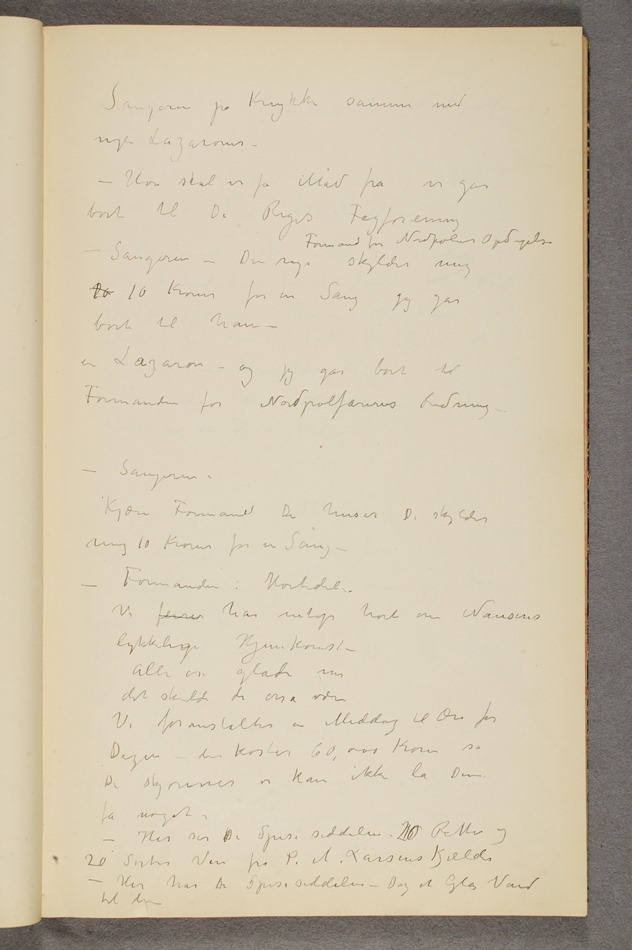 Sangeren på Krykke sammen med
nye Lazaroner –
– Hvor skal vi få Mad fra vi går
bort til De Riges Fagforening
Formand for Nordpolens Opdagelse
– Sangeren – Den nye skylder mig
10 Kroner for en Sang jeg går
bort til ham –
en Lazaron – og jeg går bort til
Formanden for Nordpolfarernes
– Sangeren.
Kjære Formand De husker De skylder
mig 10 Kroner for en Sang –
– Formanden:
Vi har netop hørt om Nansens
lykkelige Hjemkomst –
alle er glade nu
det skulde De også være
Vi foranstalter en Middag til Ære for
Dagen – den koster 60,000 Kroner så
De skjønner vi kan ikke la Dem
få noget.
– Her ser De Spiseseddelen. 20 Retter og
20 Sorter Vin fra P. A. Larsens Kjælder
– Her har De Spiseseddelen – Og et Glas Vand
til den